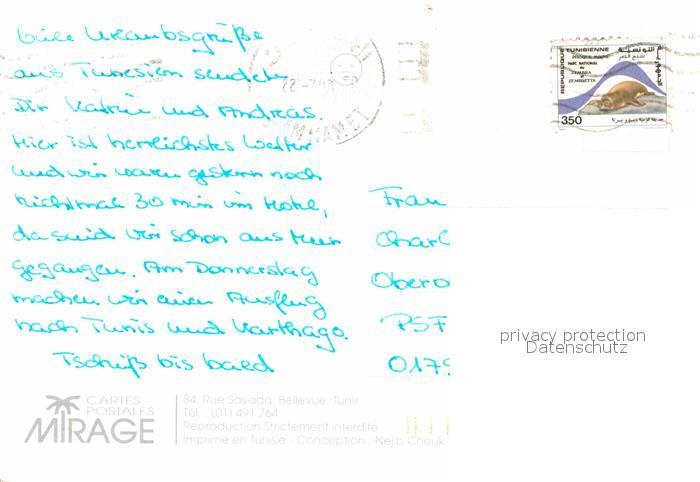 Viele Urlaubsgrüße
aus Tunesien senden
Dir Katrin und Andreas.
Hier ist herrlichstes Wetter
und wir waren gestern noch
nichtmal 30 min im Hotel,
da sind wir schon ans Meer
gegangen. Am Donnerstag
machen wir einen Ausflug
nach Tunis und Karthago.
Tschüß bis bald
Frau
Charl
Obero
PSF
0179
HAMMAMET
REPUBLIQUE TUNISIENNE
PHOQUE MOINE
PARC NATIONAL
de
ZEMBRA
et
ZEMBRETTA
350
privacy protection
Datenschutz
CARTES
POSTALES
MIRAGE
84, Rue Sayada, Bellevue, Tunis
Tél. : (01) 491 764
Reproduction Strictement interdite
Imprimé en Tunisie - Conception : Nejib Chouk